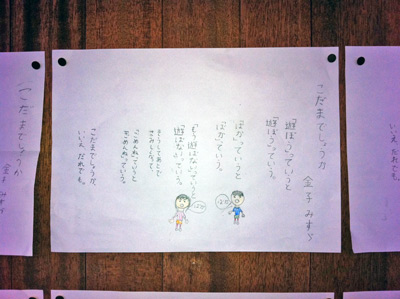 いいえ、だれでも。
こだまでしょうか
金子 みすゞ
「遊ぼう」っていうと
「遊ぼう」っていう。
「ばか」っていうと
「ばか」っていう。
「もう遊ばない」っていうと
「遊ばない」っていう。
そうしてあとで
さみしくなって、
「ごめんね」っていうと
「ごめんね」っていう。
こだまでしょうか、
いいえ、だれでも。
ばか
ばか
こだまでしょうか
金子 みすゞ